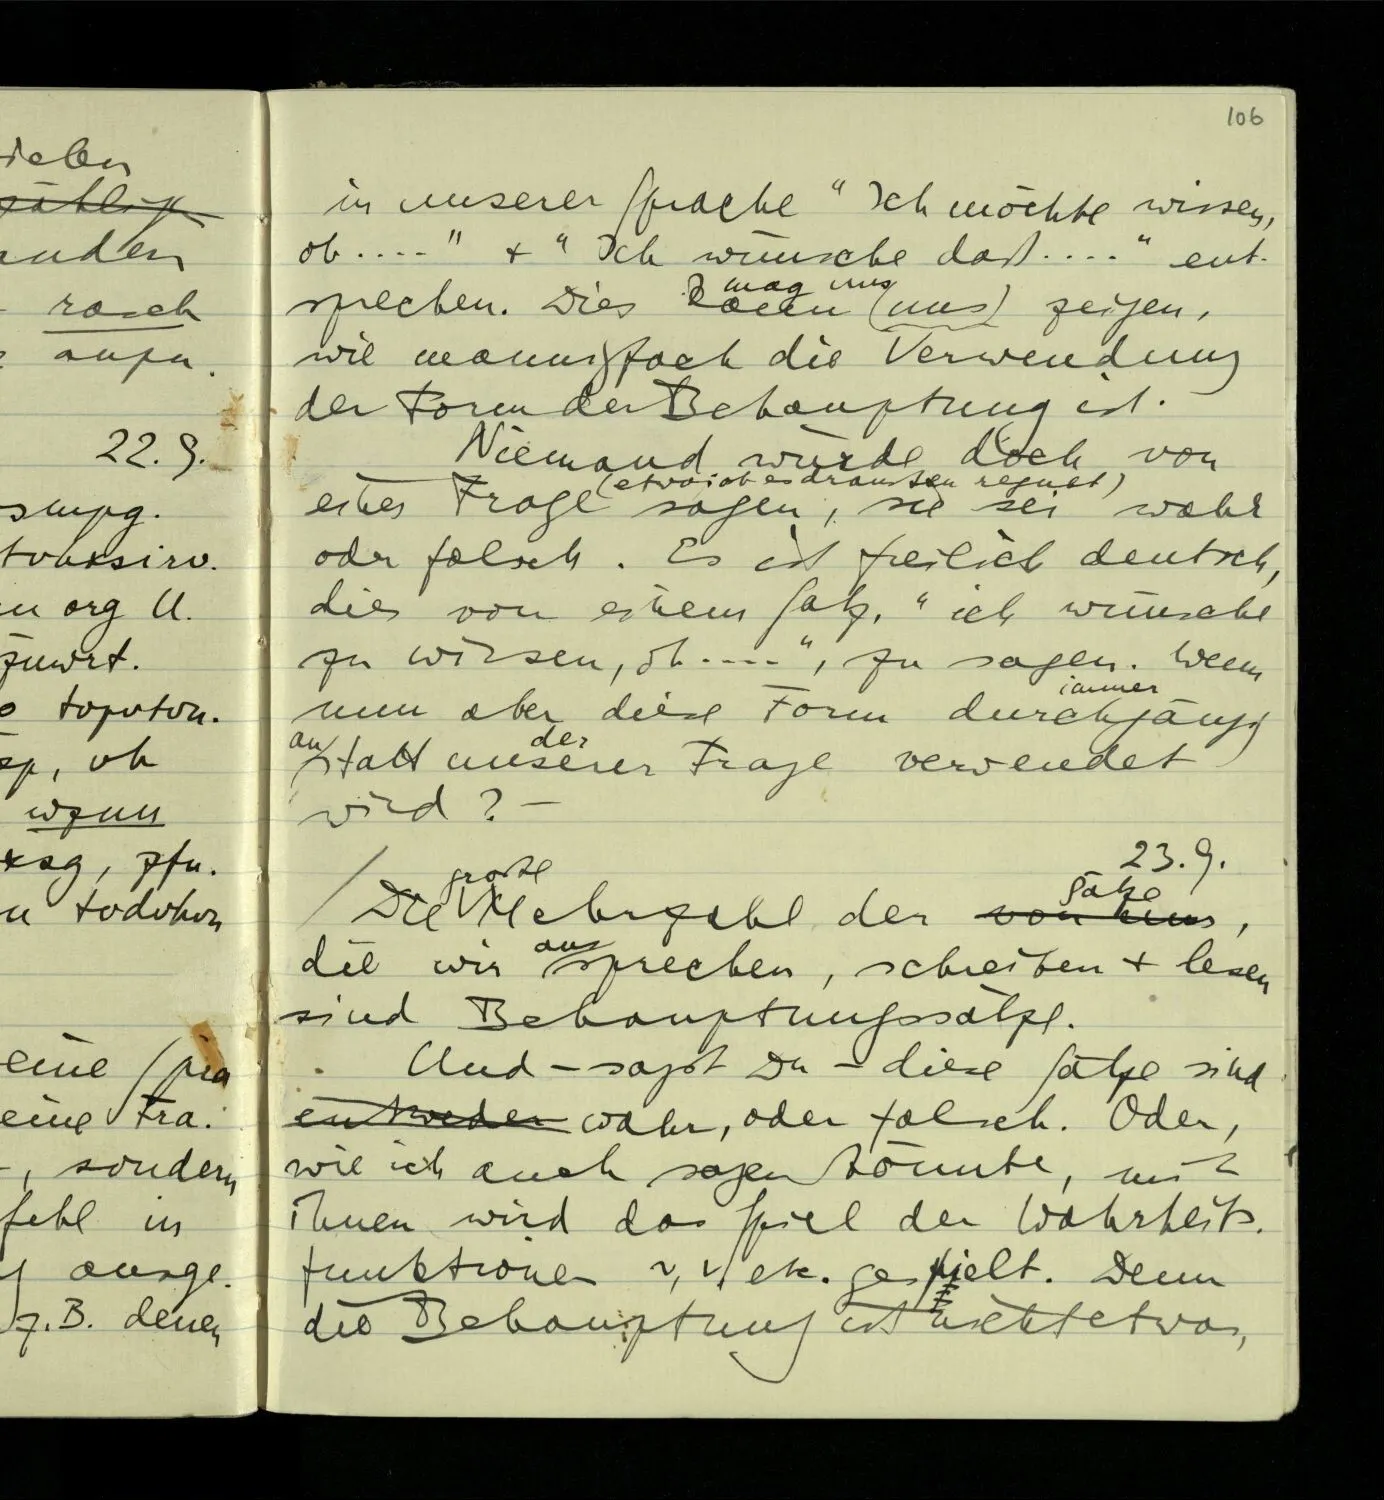 106
ieben
anders
rasch
anfu.
22.9.
smpg.
org U.
zuwrt.
, oh
wznn
eine Spra
eine Fra.
, sondern
fehl in
ausge.
z.B. denen
in unserer Sprache "Ich möchte wissen,
ob...." + "Ich wünsche daß...." ent-
mag uns
sprechen. Dies kann (uns) zeigen,
wie mannigfach die Verwendung
der Form der Behauptung ist.
Niemand würde doch von
(etwa: ob es draußen regnet)
einer Frage sagen, sie sei wahr
oder falsch. Es ist freilich deutsch,
dies von einem Satz, "ich wünsche
zu wissen, ob....", zu sagen. Wenn
immer
nun aber diese Form durchgängig
an der
statt unserer Frage verwendet
wird? –
23.9.
große Sätze
/ Die Mehrzahl der von uns,
aus
die wir sprechen, schreiben + lesen
sind Behauptungssätze.
Und – sagst Du – diese Sätze sind
entweder wahr, oder falsch. Oder,
wie ich auch sagen könnte, mit
ihnen wird das Spiel der Wahrheits-
funktionen ~, v, etc. gespielt. Denn
die Behauptung ist nicht etwas,